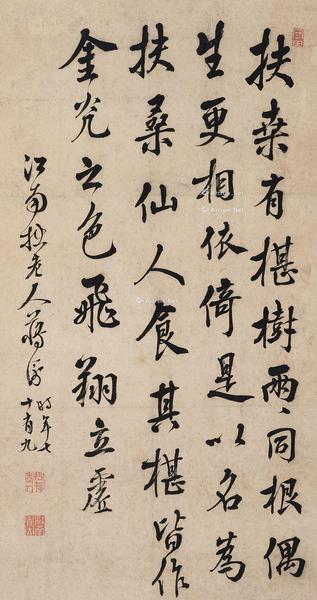 扶桒有椹樹兩〻同根偶
生更相依倚是以名為
扶桑仙人食其椹皆作
金光之色飛翔立虛
江南拙老人蔣衡時年七
十有九